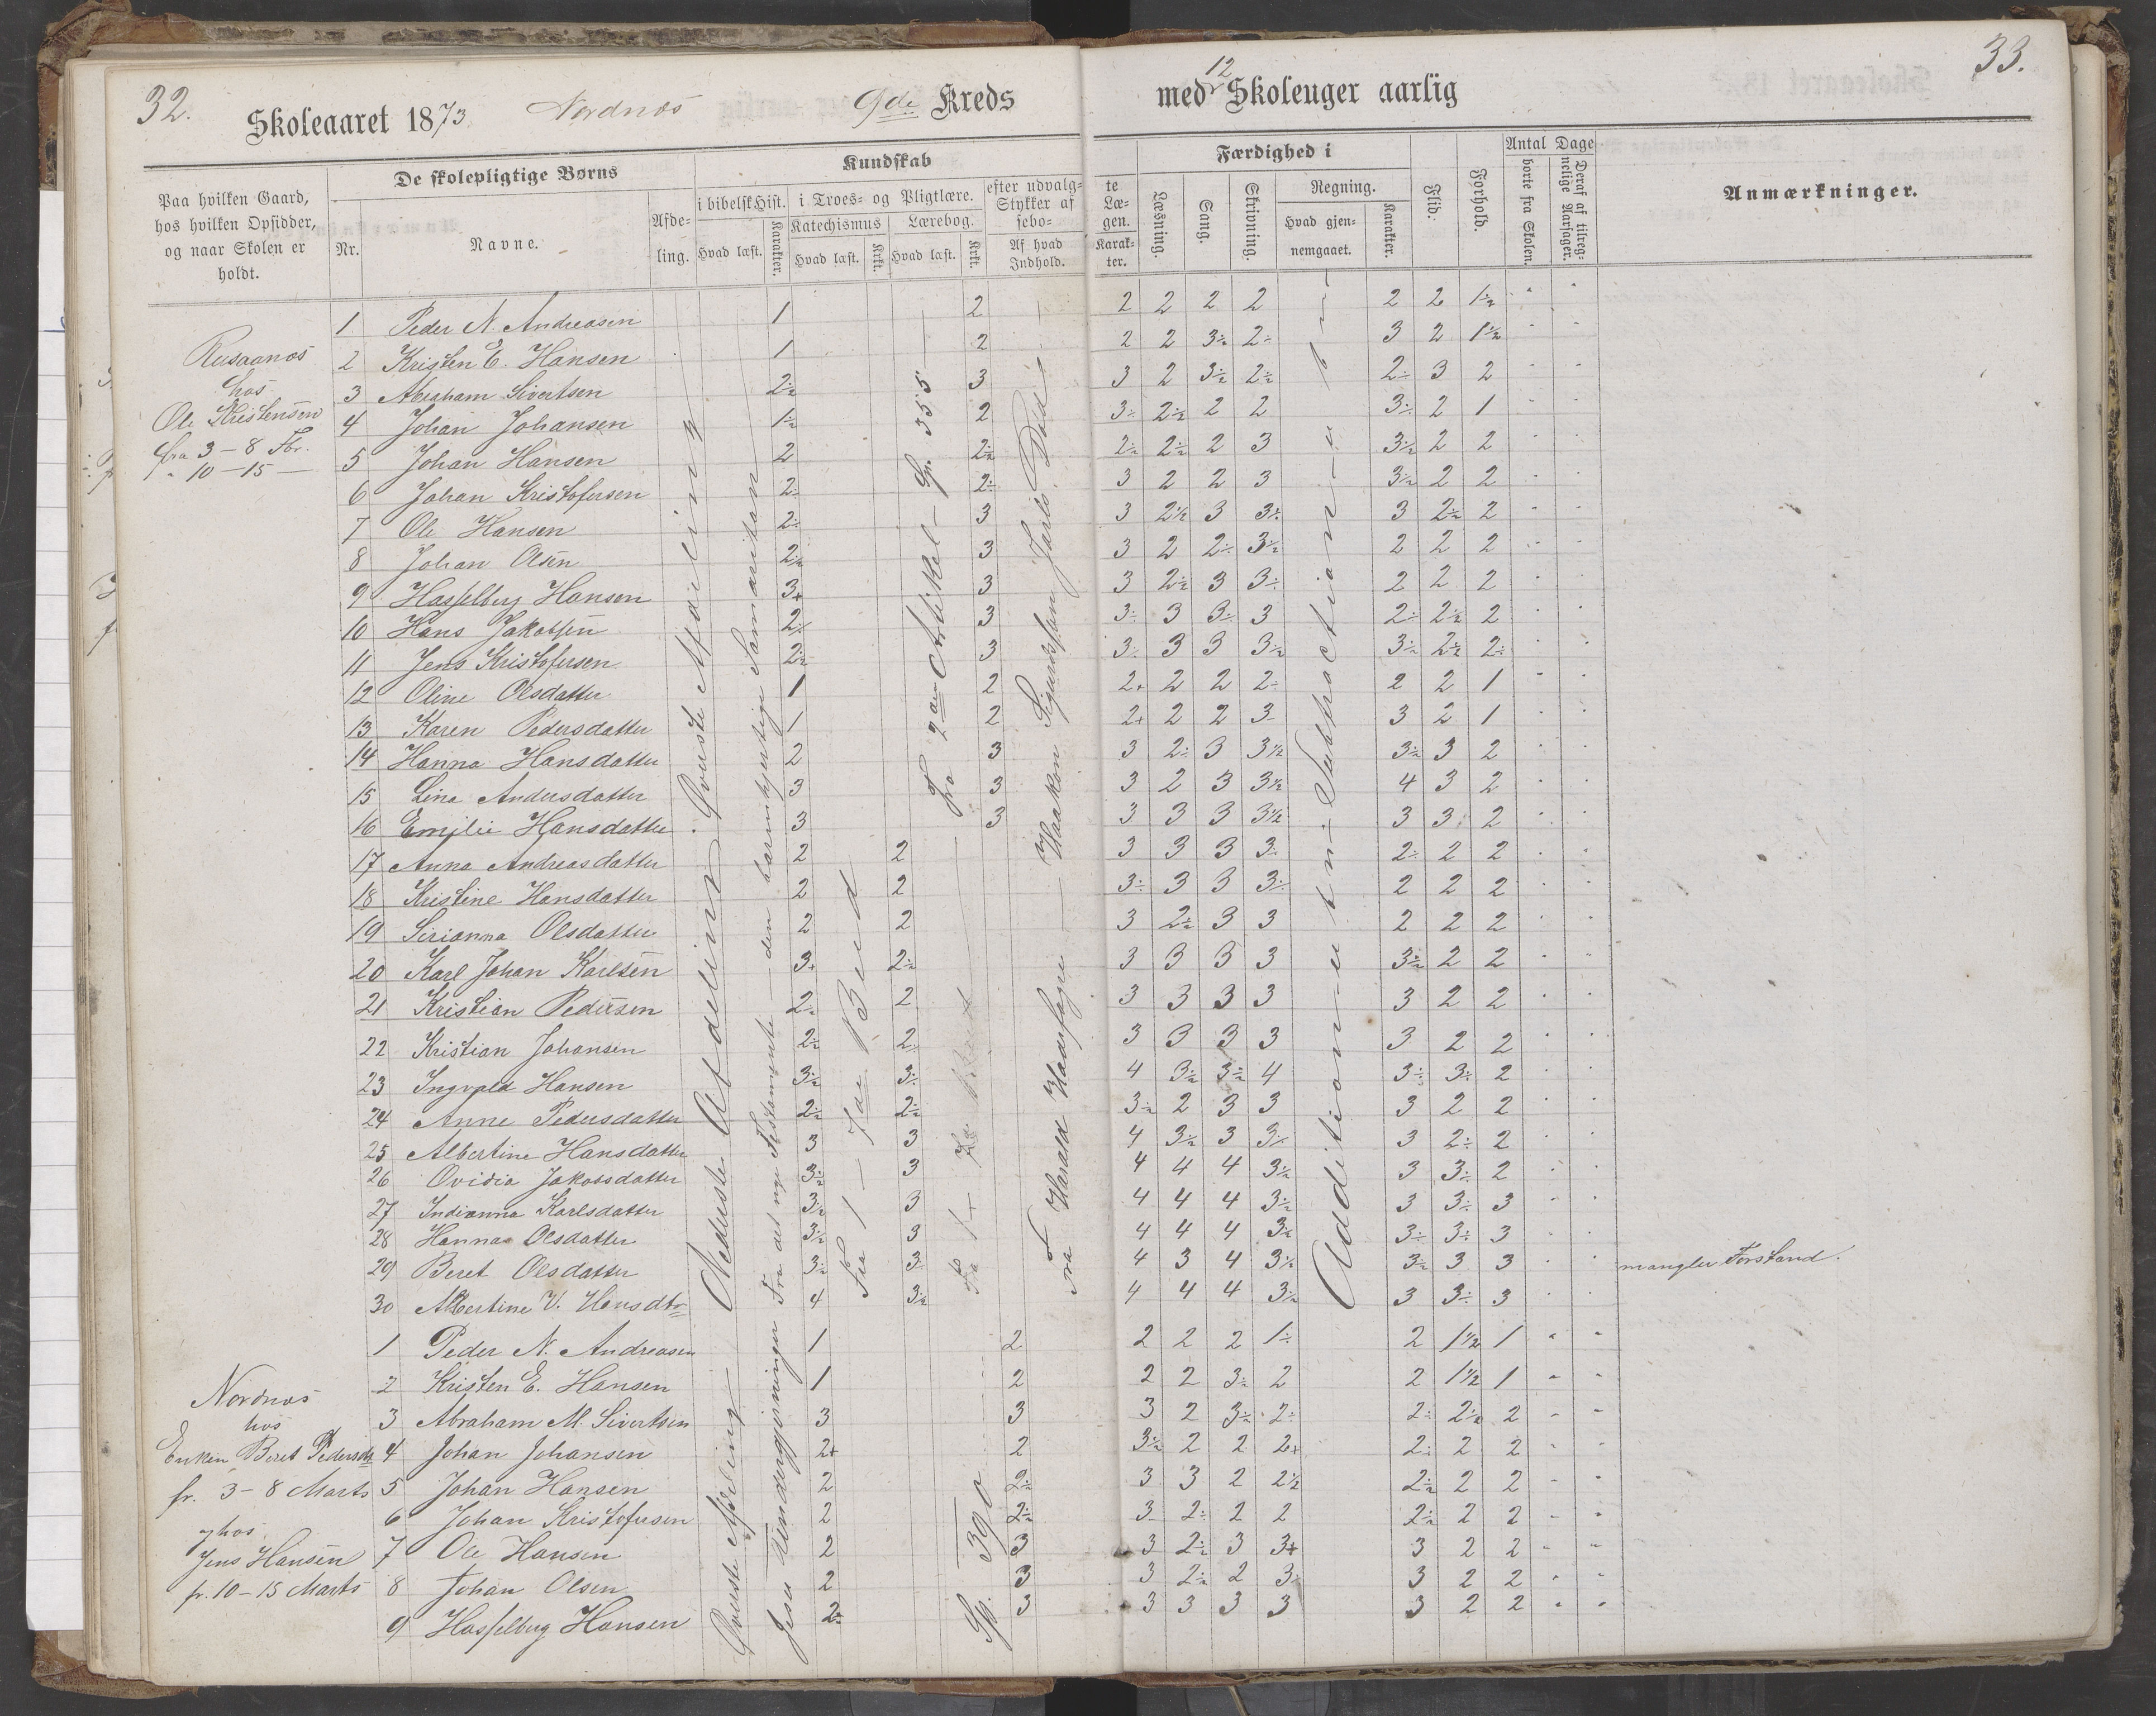 32.
Skoleaaret 1873. Nordnæs 9de Kreds
med 12 Skoleuger aarlig
33.
Paa hvilken Gaard, hos hvilken Opsidder, og naar Skolen er holdt.
De skolepligtige Børns
Nr. Navne. Afde-ling.
Kundskab
i bibelsk Hist. i Troes- og Pligtlære. efter udvalg-te Stykker af Læ-sebo-gen.
Hvad læst. Karakter. Katechismus Hvad læst. Krkt. Lærebog. Hvad læst. Krkt. Af hvad Indhold. Karak-ter.
Færdighed i
Læsning. Sang. Skrivning. Regning. Hvad gjen-nemgaaet. Karakter.
Flid. Forhold. Antal Dage borte fra Skolen. Deraf af tilreg-nelige Aarsager.
Anmærkninger.
Rusaanæs
hos
Ole Kristensen
fra 3-8 Fbr.
" 10-15 —
1 Peder N. Andreasen 1 2 2 2 2 2 2 2 1½ " "
2 Kristen E. Hansen 1 2 2 2 3½ 2÷ 3 2 1½ " "
3 Abraham Sivertsen 2½ 3 3 2 3½ 2½ 2÷ 3 2 " "
4 Johan Johansen 1½ 2 3÷ 2½ 2 2 3÷ 2 1 " "
5 Johan Hansen 2 2½ 2÷ 2½ 2 3 3½ 2 2 " "
6 Johan Kristofersen 2÷ 2÷ 3 2 2 3 3½ 2 2 " "
7 Ole Hansen 2÷ 3 3 2½ 3 3÷ 3 2½ 2 " "
8 Johan Olsen 2½ 3 3 2 2÷ 3½ 2 2 2 " "
9 Hasselberg Hansen 3+ 3 3 2½ 3 3÷ 2 2 2 " "
10 Hans Jakobsen 2½ 3 3÷ 3 3÷ 3 2÷ 2½ 2 " "
11 Jens Kristofersen 2½ 3 3÷ 3 3 3½ 3½ 2½ 2÷ " "
12 Oline Olsdatter 1 2 2+ 2 2 2÷ 2 2 1 " "
13 Karen Pedersdatter 1 2 2+ 2 2 3 3 2 1 " "
14 Hanna Hansdatter 2 3 3 2÷ 3 3½ 3½ 3 2 " "
15 Lina Andersdatter 3 3 3 2 3 3½ 4 3 2 " "
16 Emilie Hansdatter 3 3 3 3 3 3½ 3 3 2 " "
17 Anna Andreasdatter 2 2 3 3 3 3÷ 2÷ 2 2 " "
18 Kristine Hansdatter 2 2 3÷ 3 3 3÷ 2 2 2 " "
19 Sirianna Olsdatter 2 2 3 2½ 3 3 2 2 2 " "
20 Karl Johan Karlsen 3+ 2½ 3 3 3 3 3½ 2 2 " "
21 Kristian Pedersen 2÷ 2 3 3 3 3 3 2 2 " "
22 Kristian Johansen 2½ 2÷ 3 3 3 3 3 2 2 " "
23 Ingvald Hansen 3½ 3÷ 4 3½ 3½ 4 3÷ 3÷ 2 " "
24 Anne Pedersdatter 2½ 2½ 3½ 2 3 3 3 2 2 " "
25 Albertine Hansdatter 3 3 4 3½ 3 3÷ 3 2÷ 2 " "
26 Ovidia Jakobsdatter 3½ 3 4 4 4 3½ 3 3÷ 2 " "
27 Indianna Karlsdatter 3½ 3 4 4 4 3½ 3 3÷ 3 " "
28 Hanna Olsdatter 3½ 3 4 4 4 3½ 3÷ 3÷ 3 " "
29 Beret Olsdatter 3½ 3÷ 4 3 4 3½ 3½ 3 3 " " mangler Forstand.
30 Albertine V. Hansdtr 4 3½ 4 4 4 3½ 3 3÷ 3 " "
Øverste Afdeling
Nederste Afdeling
Fra det nye Testamente — den barmhjertige Samaritan
Fra 1 — 7de Bud
Fra 2den Artikel — Sp. 355
Fra Harald Haarfagre — Haakon Sigurdssøn Jarls Død
Addition — Subtraction
Nordnæs
hos
Enken Beret Pedersdtr
fr. 3-8 Marts
og hos
Jens Hansen
fr. 10-15 Marts
1 Peder N. Andreasen 1 2 2 2 2 1÷ 2 1½ 1 " "
2 Kristen E. Hansen 1 2 2 2 3½ 2 2 1½ 1 " "
3 Abraham M. Sivertsen 3 3 3 2 3½ 2÷ 2÷ 2½ 2 " "
4 Johan Johansen 2+ 2 3½ 2 2 2+ 2÷ 2 2 " "
5 Johan Hansen 2 2½ 3 3 2 2½ 2½ 2 2 " "
6 Johan Kristofersen 2 2½ 3 2÷ 2 2 2½ 2 2 " "
7 Ole Hansen 2 3 3 2½ 3 3+ 3 2 2 " "
8 Johan Olsen 2 3 3 2½ 2 3÷ 3 2 2 " "
9 Hasselberg Hansen 2÷ 3 3 3 3 3 3 2 2 " "
Øverste Afdeling
Jesu Undergjerninger
Sp. 390